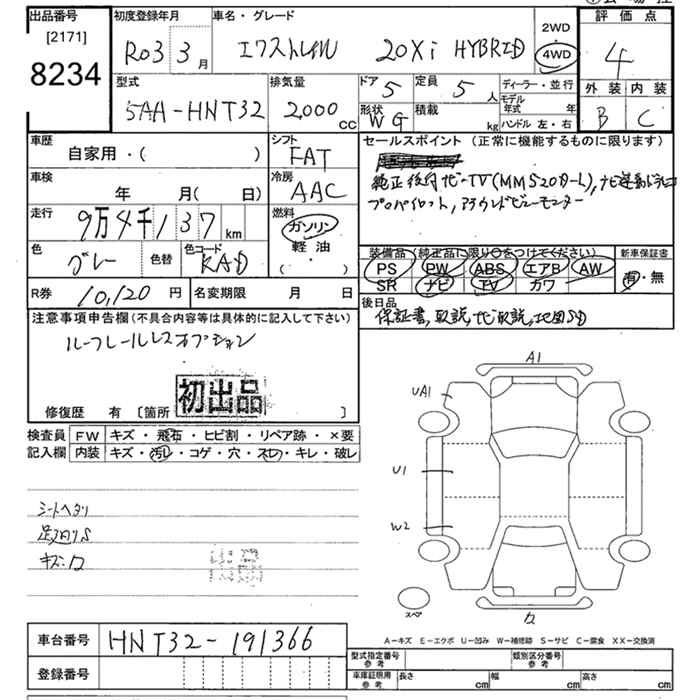 出品番号
[2171]
8234
初度登録年月
R03 3月
車名・グレード
エクストレイル 20Xi HYBRID
2WD
4WD
評価点
4
外装 内装
B C
型式
5AA-HNT32
排気量
2,000cc
ドア 5
定員 5人
形状 WG
積載 kg
ディーラー・並行
モデル年式 年
ハンドル 左・右
車歴
自家用・( )
シフト
FAT
車検
年 月( 日)
冷房
AAC
走行
9万4千137km
燃料
ガソリン
軽油
( )
色
グレー
色替
色コード
KAD
R券 10,120円
名変期限 月 日
セールスポイント (正常に機能するものに限ります)
純正後付ナビ・TV(MM520D-L),ナビ連動ドラレコ
プロパイロット,アラウンドビューモニター
装備品 (純正品に限り○をつけてください)
PS PW ABS エアB AW
SR ナビ TV カワ
新車保証書
有・無
後日品
保証書,取説,ナビ取説,地図SD
注意事項申告欄 (不具合内容等は具体的に記入して下さい)
ルーフレールレスオプション
初出品
修復歴 有 [箇所 ]
検査員記入欄
FW キズ・飛石・ヒビ割・リペア跡・×要
内装 キズ・汚レ・コゲ・穴・スレ・キレ・破レ
シートヘタリ
足廻りS
A1
UA1
U1
W2
スペア
A-キズ E-エクボ U-凹み W-補修跡 S-サビ C-腐食 XX-交換済
車台番号
HNT32-191366
登録番号
型式指定番号 参考
類別区分番号 参考
車庫証明用 参考
長さ cm
幅 cm
高さ cm